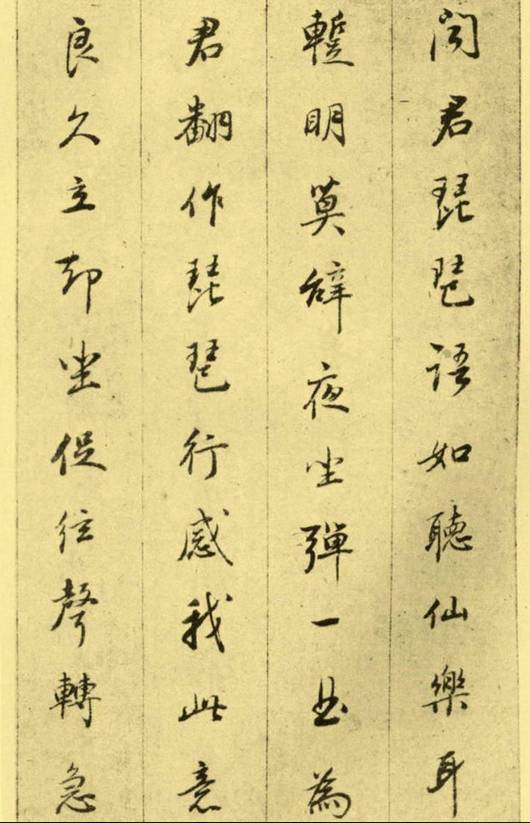 聞君琵琶語如聽仙樂耳
蹔明莫辝夜坐彈一曲為
君翻作琵琶行感我此意
良久立却坐促絃聲轉急